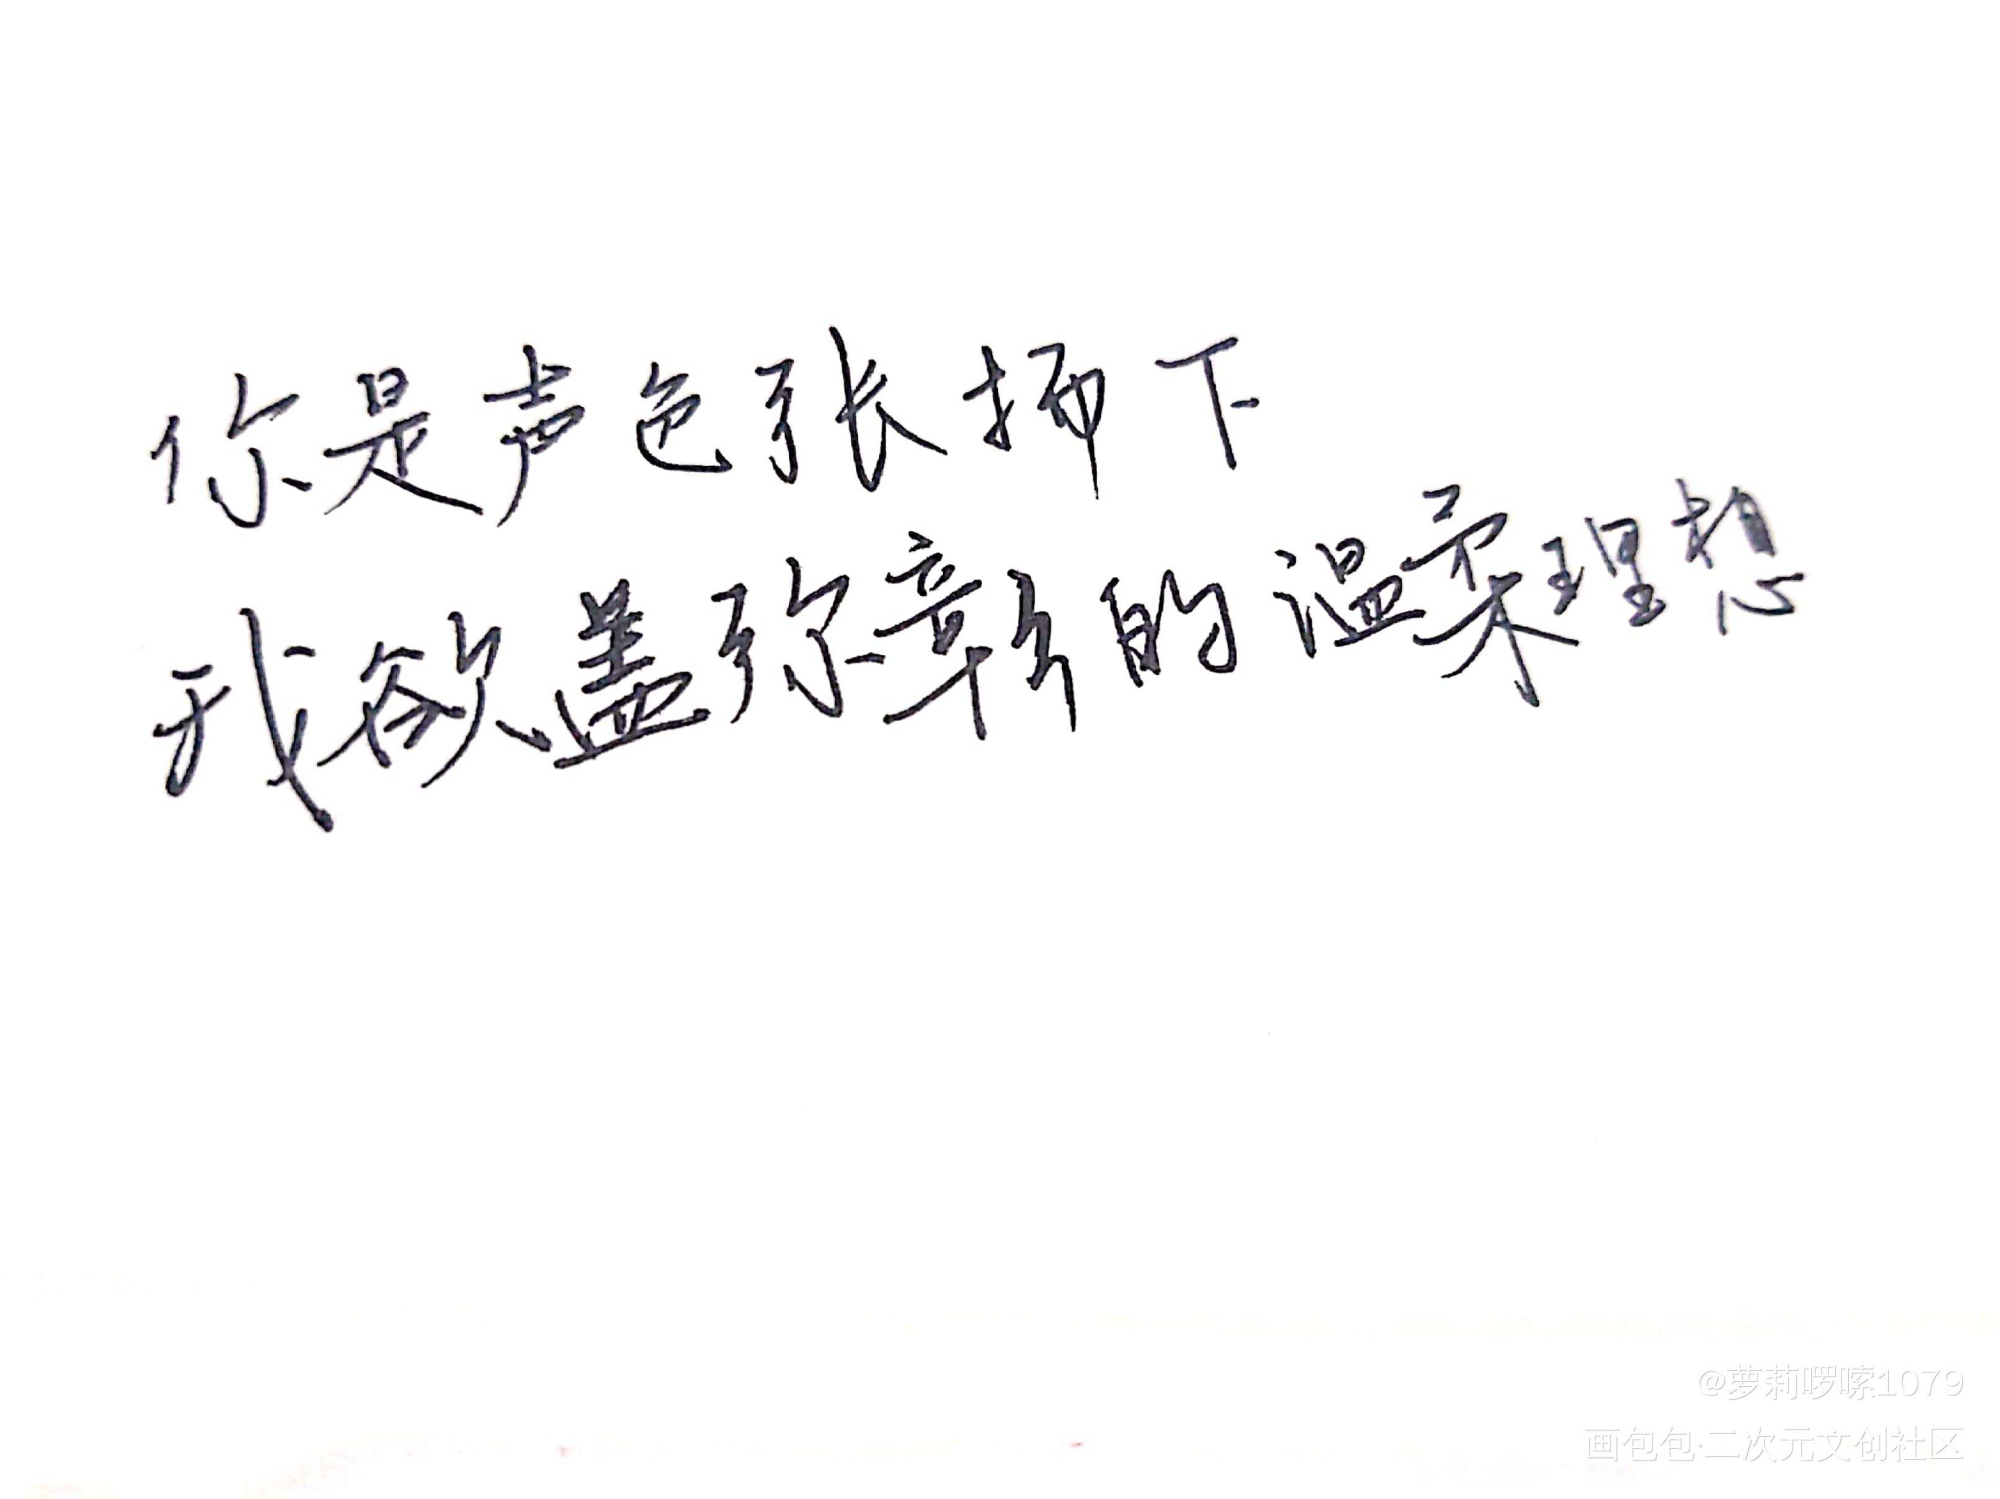 你是声色张扬下
我欲盖弥彰的温柔理想
@萝莉啰嗦1079
画包包·二次元文创社区